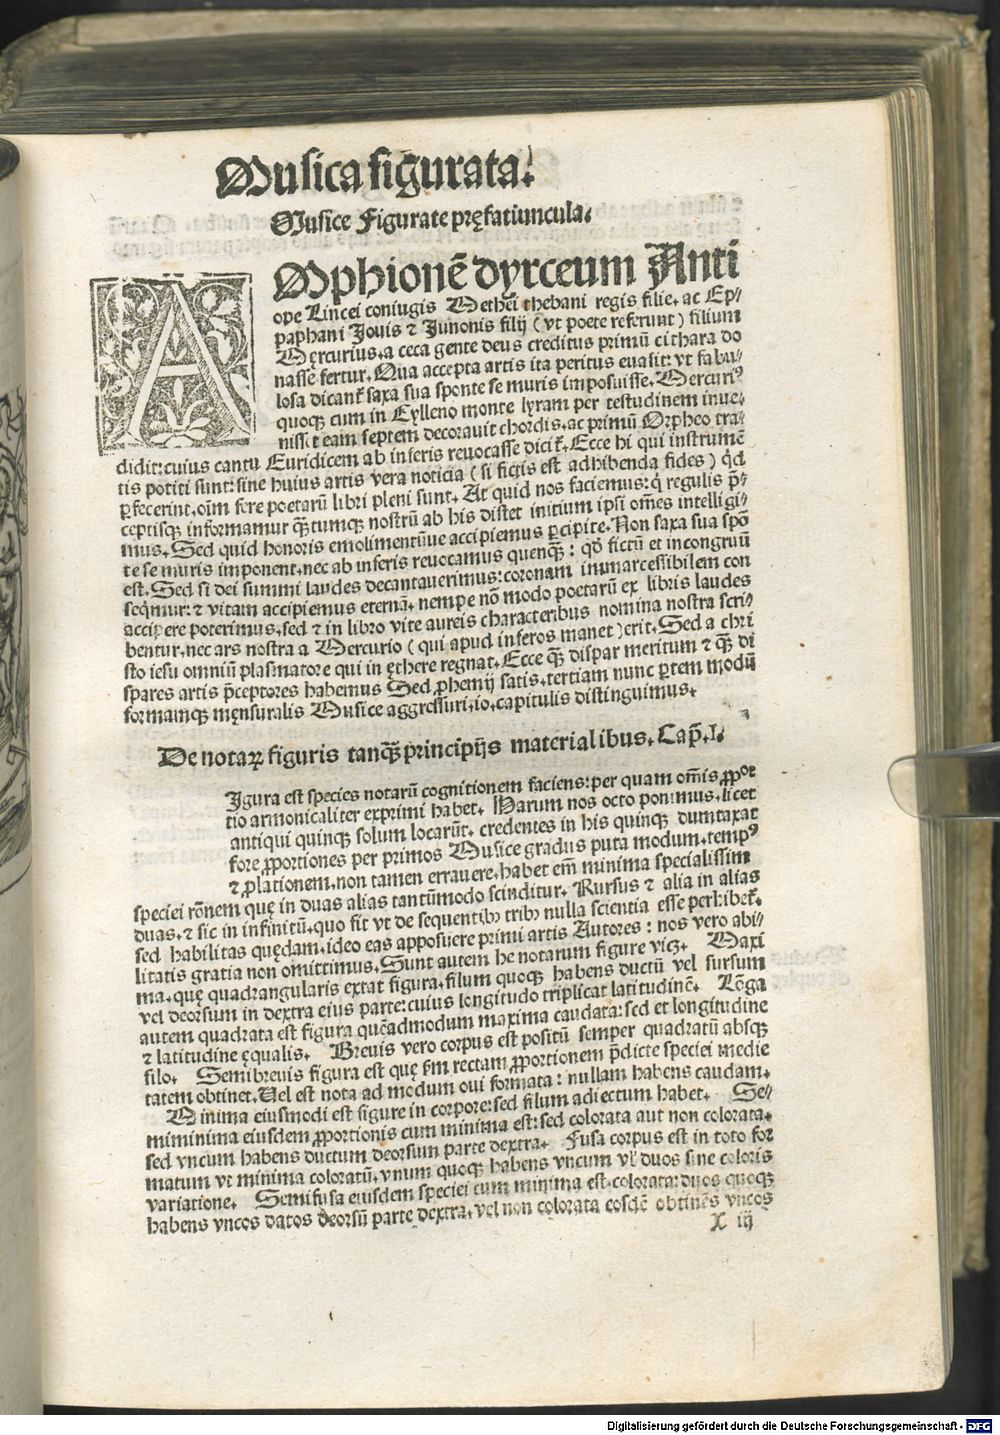 Musica figurata.
Musice Figurate pręfatiuncula.
AMphionē dyrceum Anti
ope Lincei coniugis Methei thebani regis filie. ac Ep-
paphani Jouis ⁊ Junonis filij (vt poete referunt) filium
Męrcurius. a ceca gente deus creditus primū cithara do
nasse fertur. Qua accepta artis ita peritus euasit: vt fabu-
losa dicanť saxa sua sponte se muris imposuisse. Mercuriꝰ
quoqꝫ cum in Cylleno monte lyram per testudinem inue-
nisset eam septem decorauit chordis. ac primū Orpheo tra-
didit: cuius cantu Euridicem ab inferis reuocasse diciť. Ecce hi qui instrumē
tis potiti sunt: sine huius artis vera noticia (si fictis est adhibenda fides) qđ
ꝑfecerint. oīm fere poetarū libri pleni sunt. At quid nos faciemus: q̄ regulis p̄-
ceptisqꝫ informamur q̄ꝫtumqꝫ nostrū ab his distet initium ipsi om̄es intelligi-
mus. Sed quid honoris emolimentiue accipiemus ꝑcipite. Non saxa sua spō
te se muris imponent. nec ab inferis reuocamus quenqꝫ̄: qđ fictū et incongruū
est. Sed si dei summi laudes decantauerimus: coronam immarcessibilem con
seq̄mur: ⁊ vitam accipiemus eternā. nempe nō modo poetarū ex libris laudes
accipere poterimus. sed ⁊ in libro vite aureis characteribus nomina nostra scri-
bentur. nec ars nostra a Mercurio (qui apud inferos manet) erit. Sed a chri
sto iesu omniū plasmatore qui in ęthere regnat. Ecce qꝫ̄ dispar meritum ⁊ qꝫ̄ di
spares artis p̄ceptores habemus Sed ꝓhemij satis. tertiam nunc ꝑtem modū
formamqꝫ męnsuralis Musice aggressuri. io. capitulis distinguimus.
De notaꝝ figuris tanqꝫ̄ principijs materialibus. Cap̄. I.
Igura est species notarū cognitionem faciens: per quam om̄is ꝓpor
tio armonicaliter exprimi habet. Harum nos octo ponimus. licet
antiqui quinqꝫ solum locarūt. credentes in his quinqꝫ dumtaxat
fore ꝓportiones per primos Musice gradus puta modum. tempꝰ
⁊ ꝓlationem. non tamen errauere. habet em̄ minima specialissim
speciei rōnem quę in duas alias tantūmodo scinditur. Rursus ⁊ alia in alias
duas. ⁊ sic in infinitū. quo fit vt de sequentibꝫ tribꝫ nulla scientia esse perhibeť.
sed habilitas quędam. ideo eas apposuere primi artis Autores: nos vero abi-
litatis gratia non omittimus. Sunt autem he notarum figure viꝫ. Maxi
ma. quę quadrangularis extat figura. filum quoqꝫ habens ductū vel sursum
vel deorsum in dextra eius parte: cuius longitudo triplicat latitudinē. Lōga
autem quadrata est figura quēadmodum maxima caudata: sed et longitudine
⁊ latitudine ęqualis. Breuis vero corpus est positū semper quadratū absqꝫ
filo. Semibreuis figura est quę ẜm rectam ꝓportionem p̄dicte speciei medie
tatem obtinet. Uel est nota ad modum oui formata: nullam habens caudam.
Minima eiusmodi est figure in corpore: sed filum adiectum habet. Se-
miminima eiusdem ꝓportionis cum minima est: sed colorata aut non colorata.
sed vncum habens ductum deorsum parte dextra. Fusa corpus est in toto for
matum vt minima coloratū. vnum quoqꝫ habens vncum vꝉ duos sine coloris
variatione. Semifusa eiusdem speciei cum minima est. colorata: duos quoqꝫ
habens vncos datos deorsū parte dextra. vel non colorata eosdē obtinēs vncos
X iij
Digitalisierung gefördert durch die Deutsche Forschungsgemeinschaft - DFG